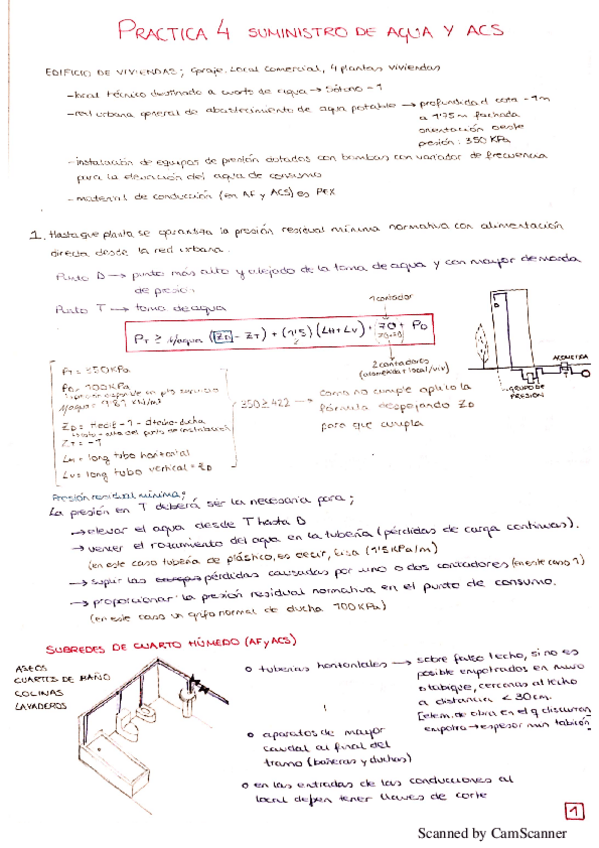 PRACTICA 4 SUMINISTRO DE AGUA Y ACS
EDIFICIO DE VIVIENDAS; garaje, local comercial, 4 plantas viviendas
- local técnico destinado a cuarto de agua → Sótano -1
- red urbana general de abastecimiento de agua potable → profundidad cota -1m
a 1'75m fachada
orientación oeste
presión: 350 KPa
- instalación de equipos de presión dotados con bombas con variador de frecuencia
para la elevación del agua de consumo
- material de conducción (en AF y ACS) es PEX
1. Hasta que planta se garantiza la presión residual mínima normativa con alimentación
directa desde la red urbana.
Punto D → punto más alto y alejado de la toma de agua y con mayor demanda
de presión
Punto T → toma de agua
1 contador
PT ≥ γagua (ZD - ZT) + (1'5) (LH + LV) + 70 + PD
2 contadores
(acometida local/viv)
ACOMETIDA
GRUPO DE
PRESION
PT = 350 KPa
PD = 100 KPa
γagua = 9'81 KN/m³
ZT = -1
LH = long tubo horizontal
LV = long tubo vertical = ZD
350 ≥ 422 → como no cumple aplico la
fórmula despejando ZD
para que cumpla
Presión residual mínima;
La presión en T deberá ser la necesaria para;
→ elevar el agua desde T hasta D
→ vencer el rozamiento del agua en la tubería (pérdidas de carga continuas).
(en este caso tubería de plástico, es decir, lisa (1'5 KPa/m)
→ suplir las pérdidas causadas por uno o dos contadores (en este caso 1)
→ proporcionar la presión residual normativa en el punto de consumo.
(en este caso un grifo normal de ducha 100 KPa)
SUBREDES DE CUARTO HÚMEDO (AF y ACS)
ASEOS
CUARTOS DE BAÑO
COCINAS
LAVADEROS
o tuberías horizontales → sobre falso techo, si no es
posible empotrados en muro
o tabique, cercanas al techo
a distancia < 30cm.
[elem. de obra en el q discurran
empotra → espesor min tabicón]
o aparatos de mayor
caudal al final del
tramo (bañeras y duchas)
o en las entradas de las conducciones al
local deben tener llaves de corte
1
Scanned by CamScanner